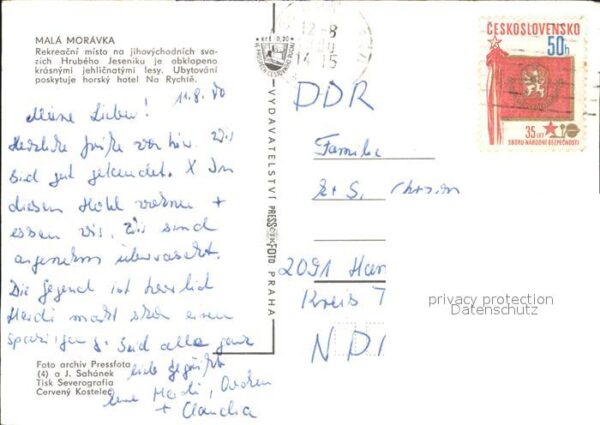 MALÁ MORÁVKA
Rekreační místa na jihovýchodních sva-
zích Hrubého Jeseníku je obklopeno
krásnými jehličnatými lesy. Ubytování
poskytuje horský hotel Na Rychtě.
11.8.80
Meine Lieben!
Herzliche Grüße von hier. Wir
sind gut gelandet. X In
diesem Hotel wohnen +
essen wir. Wir sind
angenehm überrascht.
Die Gegend ist herrlich
Heidi macht schon einen
Spaziergang. Seid alle ganz
lieb gegrüßt
Heidi,
+ Claudia
Foto archiv Pressfoto
(4) a J. Sahánek
Tisk Severografia
Červený Kostelec
VYDAVATELSTVÍ PRESSFOTO PRAHA
12.-8
14-15
ČESKOSLOVENSKO
50h
35 LET
SBORU NÁRODNÍ BEZPEČNOSTI
DDR
Familie
2091 Har
Kreis T
privacy protection
Datenschutz